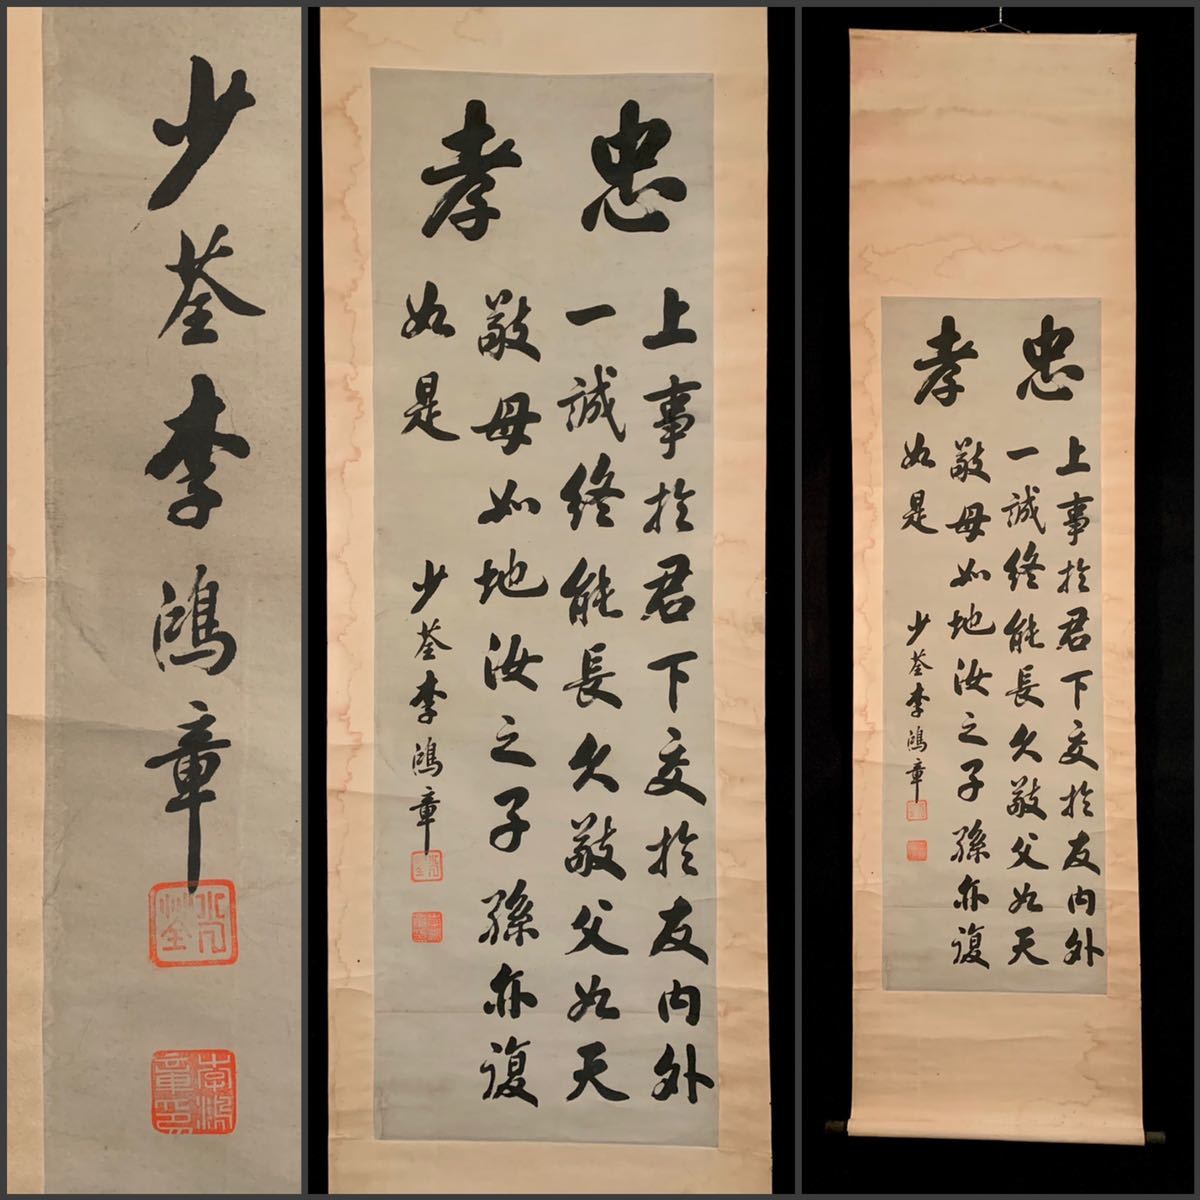 少荃李鴻章
少荃
李鴻章印
忠孝
上事於君下交於友內外
一誠終能長久敬父如天
敬母如地汝之子孫亦復
如是
少荃李鴻章
忠孝
上事於君下交於友內外
一誠終能長久敬父如天
敬母如地汝之子孫亦復
如是
少荃李鴻章